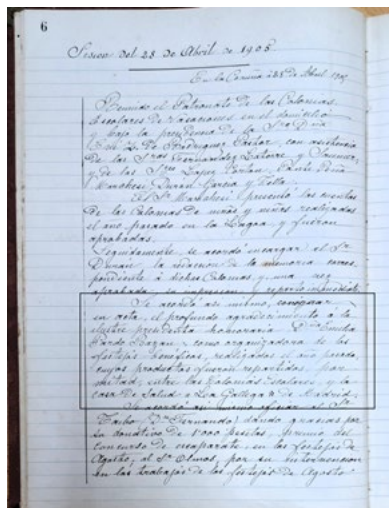 6
Sesion del 28 de Abril de 1905
En la Coruña a 28 de Abril 1905
Reunido el Patronato de las Colonias
Escolares de Vacaciones en el domicilio
y bajo la presidencia de la Sra Dña
de Rodriguez Pastor, con asistencia
de las Sras Fernandez Latorre y
y de los Sres Lopez
Marchesi Duran Garcia y Tella.
El Sr Marchesi presentó las cuentas
de las Colonias de niños y niñas realizadas
el año pasado en La Lagoa, y fueron
aprobadas.
Seguidamente, se acordó encargar al Sr
Duran la de la memoria corres
pondiente á dichas Colonias y una vez
aprobada, su impresion y reparto inmediato.
Se acordó asi mismo, consignar
en acta, el profundo agradecimiento á la
ilustre presidenta honoraria Dña Emilia
Pardo Bazan, como organizadora de las
fiestas beneficas, realizadas el año pasado,
cuyos productos fueron repartidos, por
mitad, entre las Colonias Escolares, y la
casa de Salud "La Gallega" de Madrid.
Se acordó asi mismo oficiar al Sr
Torbo (Dn Fernando) dando gracias por
su donativo de pesetas, premio del
concurso de escaparates, en los festejos de
Agosto, al Sr Olmos, por su intervencion
en los trabajos de los festejos de Agosto